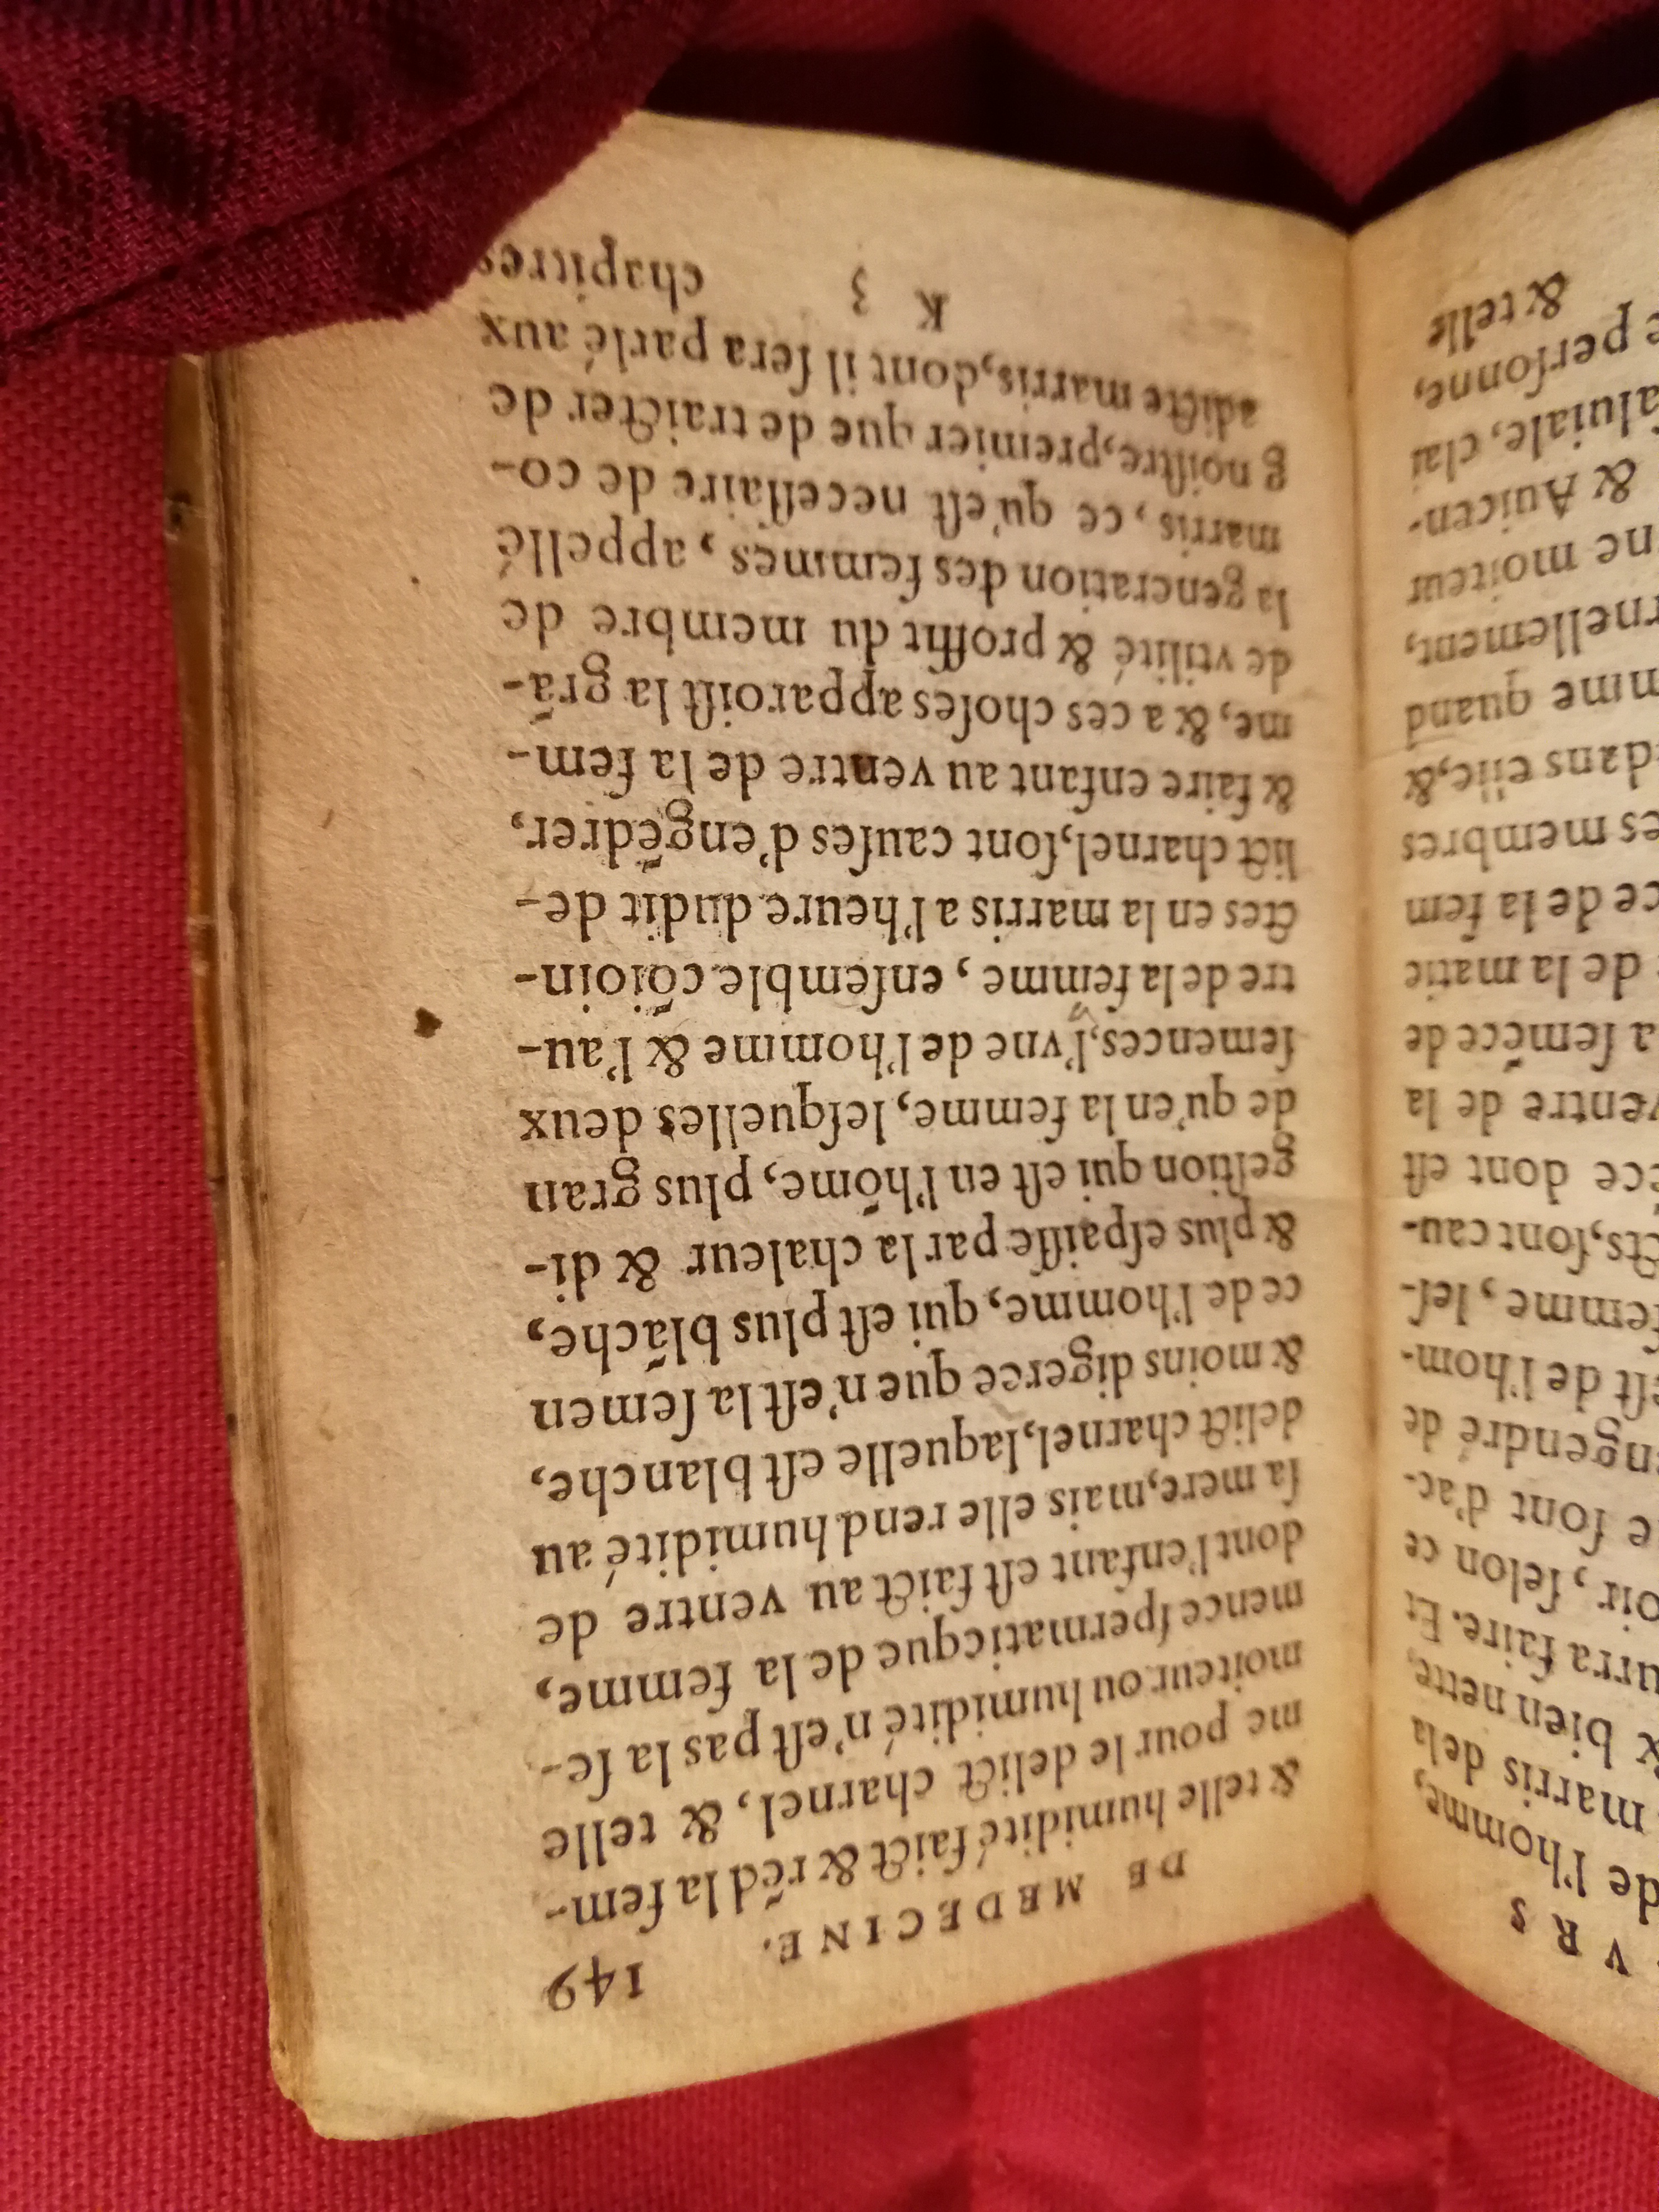 VRS
de l'homme,
marris dela
& bien nette,
urra faire. Et
oir, ſelon ce
e ſont d'ac-
ngendré de
eſt de l'hom-
femme, leſ-
cts, ſont cau-
ẽce dont eſt
ventre de la
a ſemẽce de
de la matie
ce de la fem
es membres
dans elle, &
mme quand
rnellement,
ne moiteur
& Auicen-
ſaluiale, clai
e perſonne,
& telle
DE MEDECINE. 149
& telle humidité faict & rẽd la fem-
me pour le delict charnel, & telle
moiteur ou humidité n'eſt pas la ſe-
mence ſpermaticque de la femme,
dont l'enfant eſt faict au ventre de
ſa mere, mais elle rend humidité au
delict charnel, laquelle eſt blanche,
& moins digeree que n'eſt la ſemen
ce de l'homme, qui eſt plus blãche,
& plus eſpaiſſe par la chaleur & di-
geſtion qui eſt en l'hõme, plus gran
de qu'en la femme, leſquelles deux
ſemences, l'vne de l'homme & l'au-
tre de la femme, enſemble cõioin-
ctes en la marris a l'heure dudit de-
lict charnel, ſont cauſes d'engẽdrer,
& faire enfant au ventre de la fem-
me, & a ces choſes apparoiſt la grã-
de vtilité & proffit du membre de
la generation des femmes, appellé
marris, ce qu'eſt neceſſaire de co-
g noiſtre, premier que de traicter de
adicte marris, dont il ſera parlé aux
K 3 chapitres